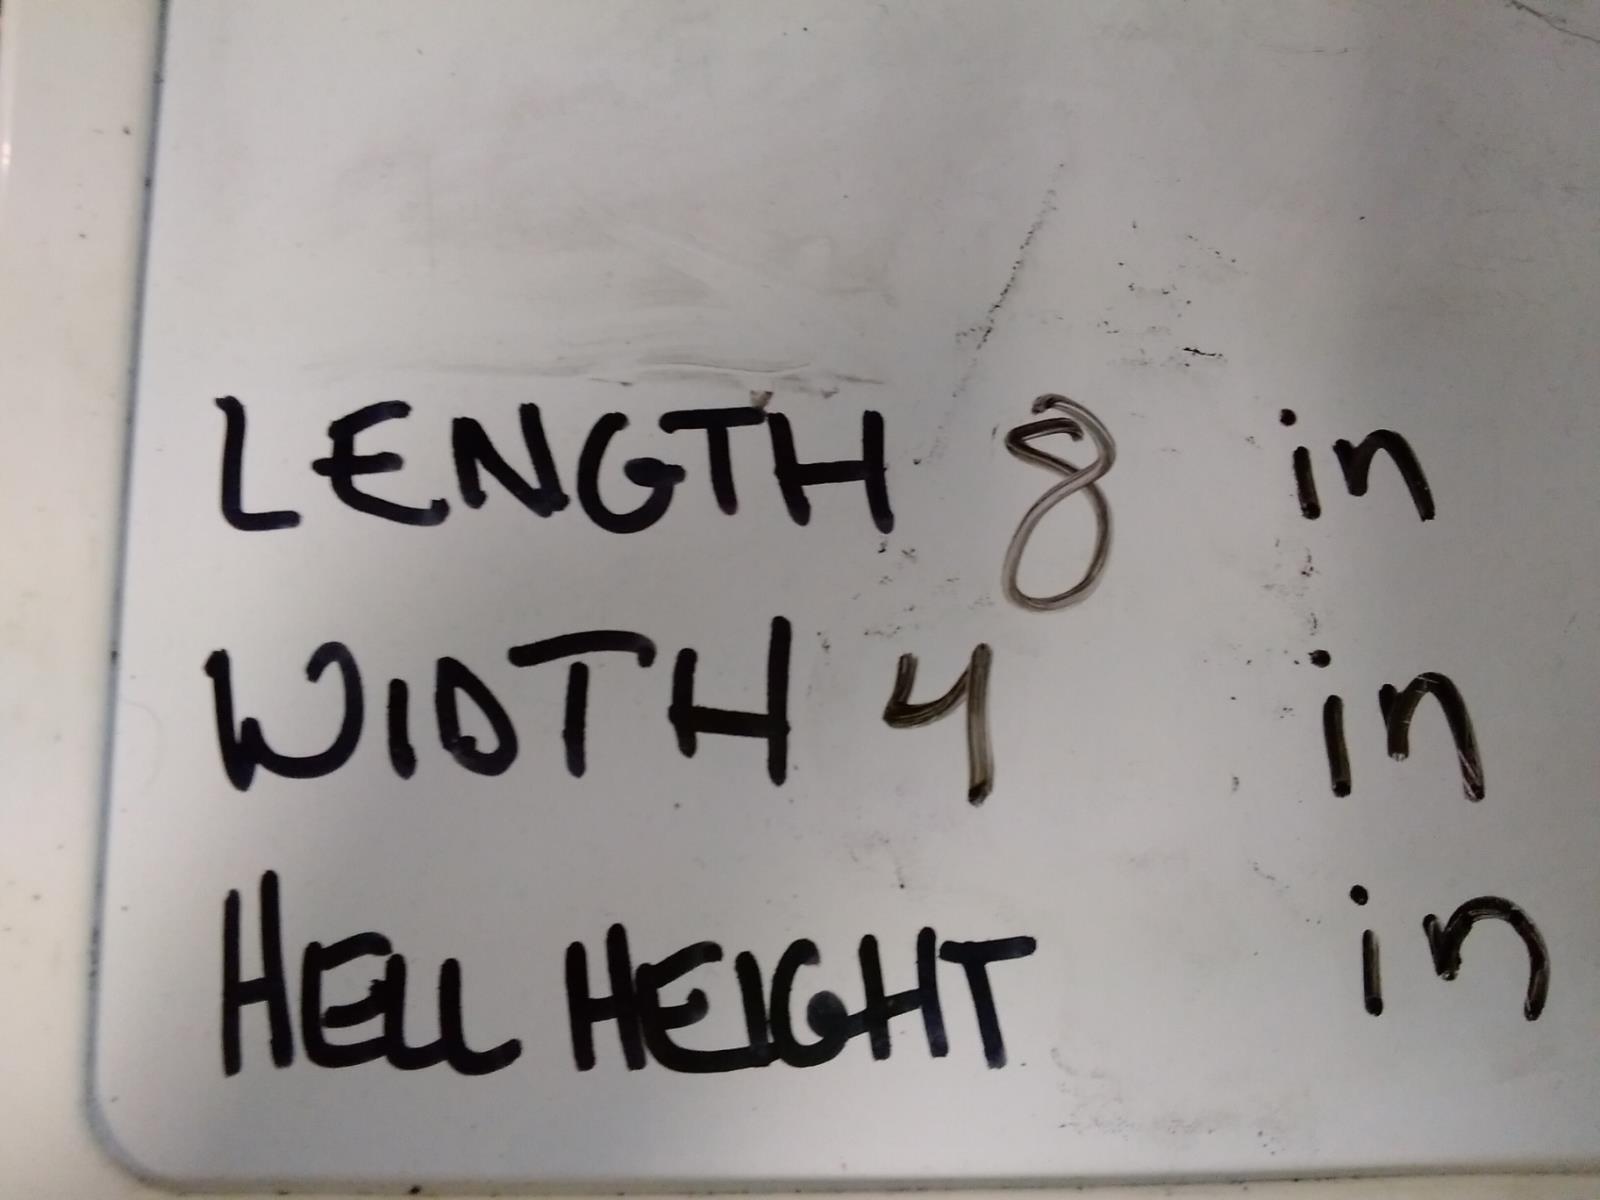 LENGTH 8 in
WIDTH 4 in
HELL HEIGHT in